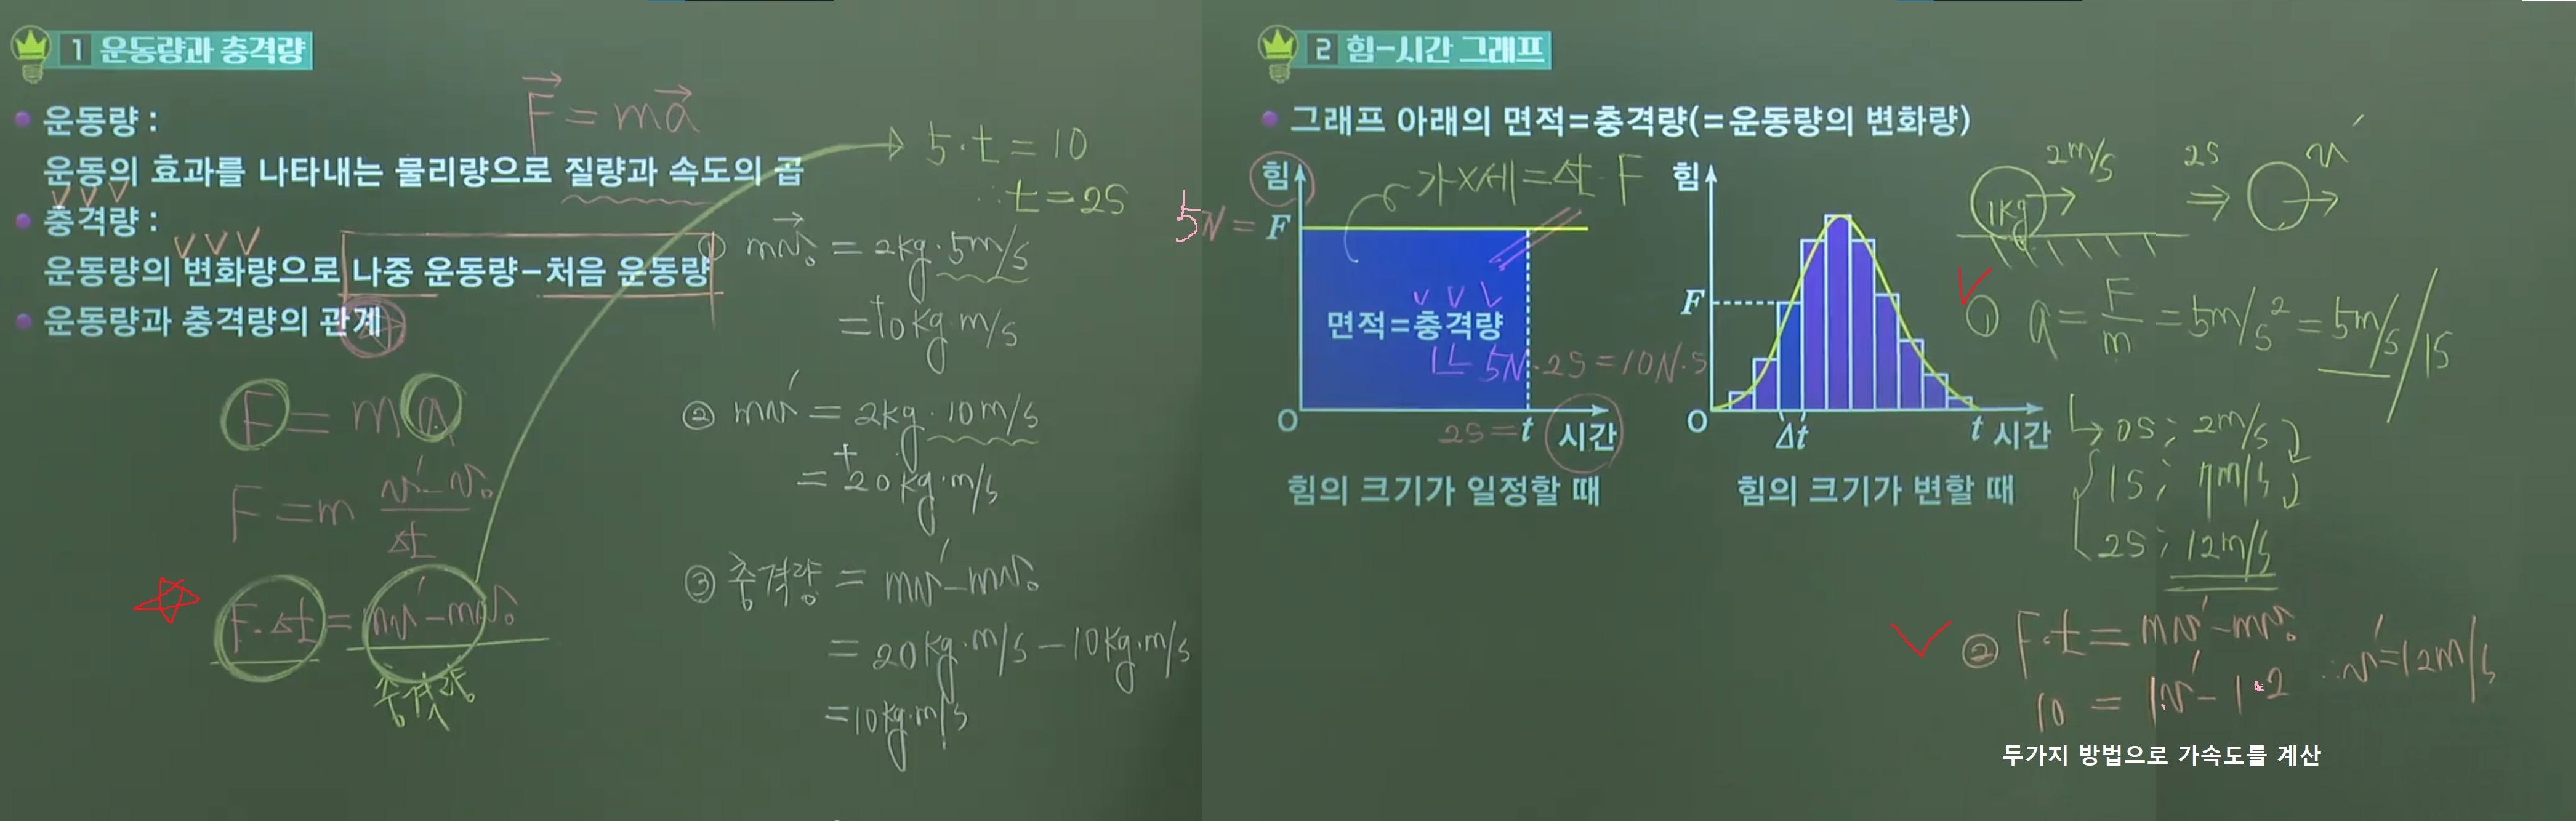 1 운동량과 충격량
F = ma
운동량 :
운동의 효과를 나타내는 물리량으로 질량과 속도의 곱
충격량 :
운동량의 변화량으로 나중 운동량-처음 운동량
운동량과 충격량의 관계
F = ma
F = m (v'-v₀)/Δt
F·Δt = mv'-mv₀
충격량
5·t = 10
∴ t = 2s
① mv₀ = 2kg·5m/s
= +10kg·m/s
② mv' = 2kg·10m/s
= +20kg·m/s
③ 충격량 = mv'-mv₀
= 20kg·m/s - 10kg·m/s
= 10kg·m/s
2 힘-시간 그래프
그래프 아래의 면적=충격량(=운동량의 변화량)
힘
가×세=Δt·F
5N = F
면적=충격량
5N·2s = 10N·s
O
2s = t 시간
힘의 크기가 일정할 때
힘
F
O
Δt
t 시간
힘의 크기가 변할 때
2m/s
2s
v'
1kg
⇒
① a = F/m = 5m/s² = 5m/s/1s
0s ; 2m/s
1s ; 7m/s
2s ; 12m/s
② F·t = mv'-mv₀
10 = 1·v'-1·2
∴ v' = 12m/s
두가지 방법으로 가속도를 계산